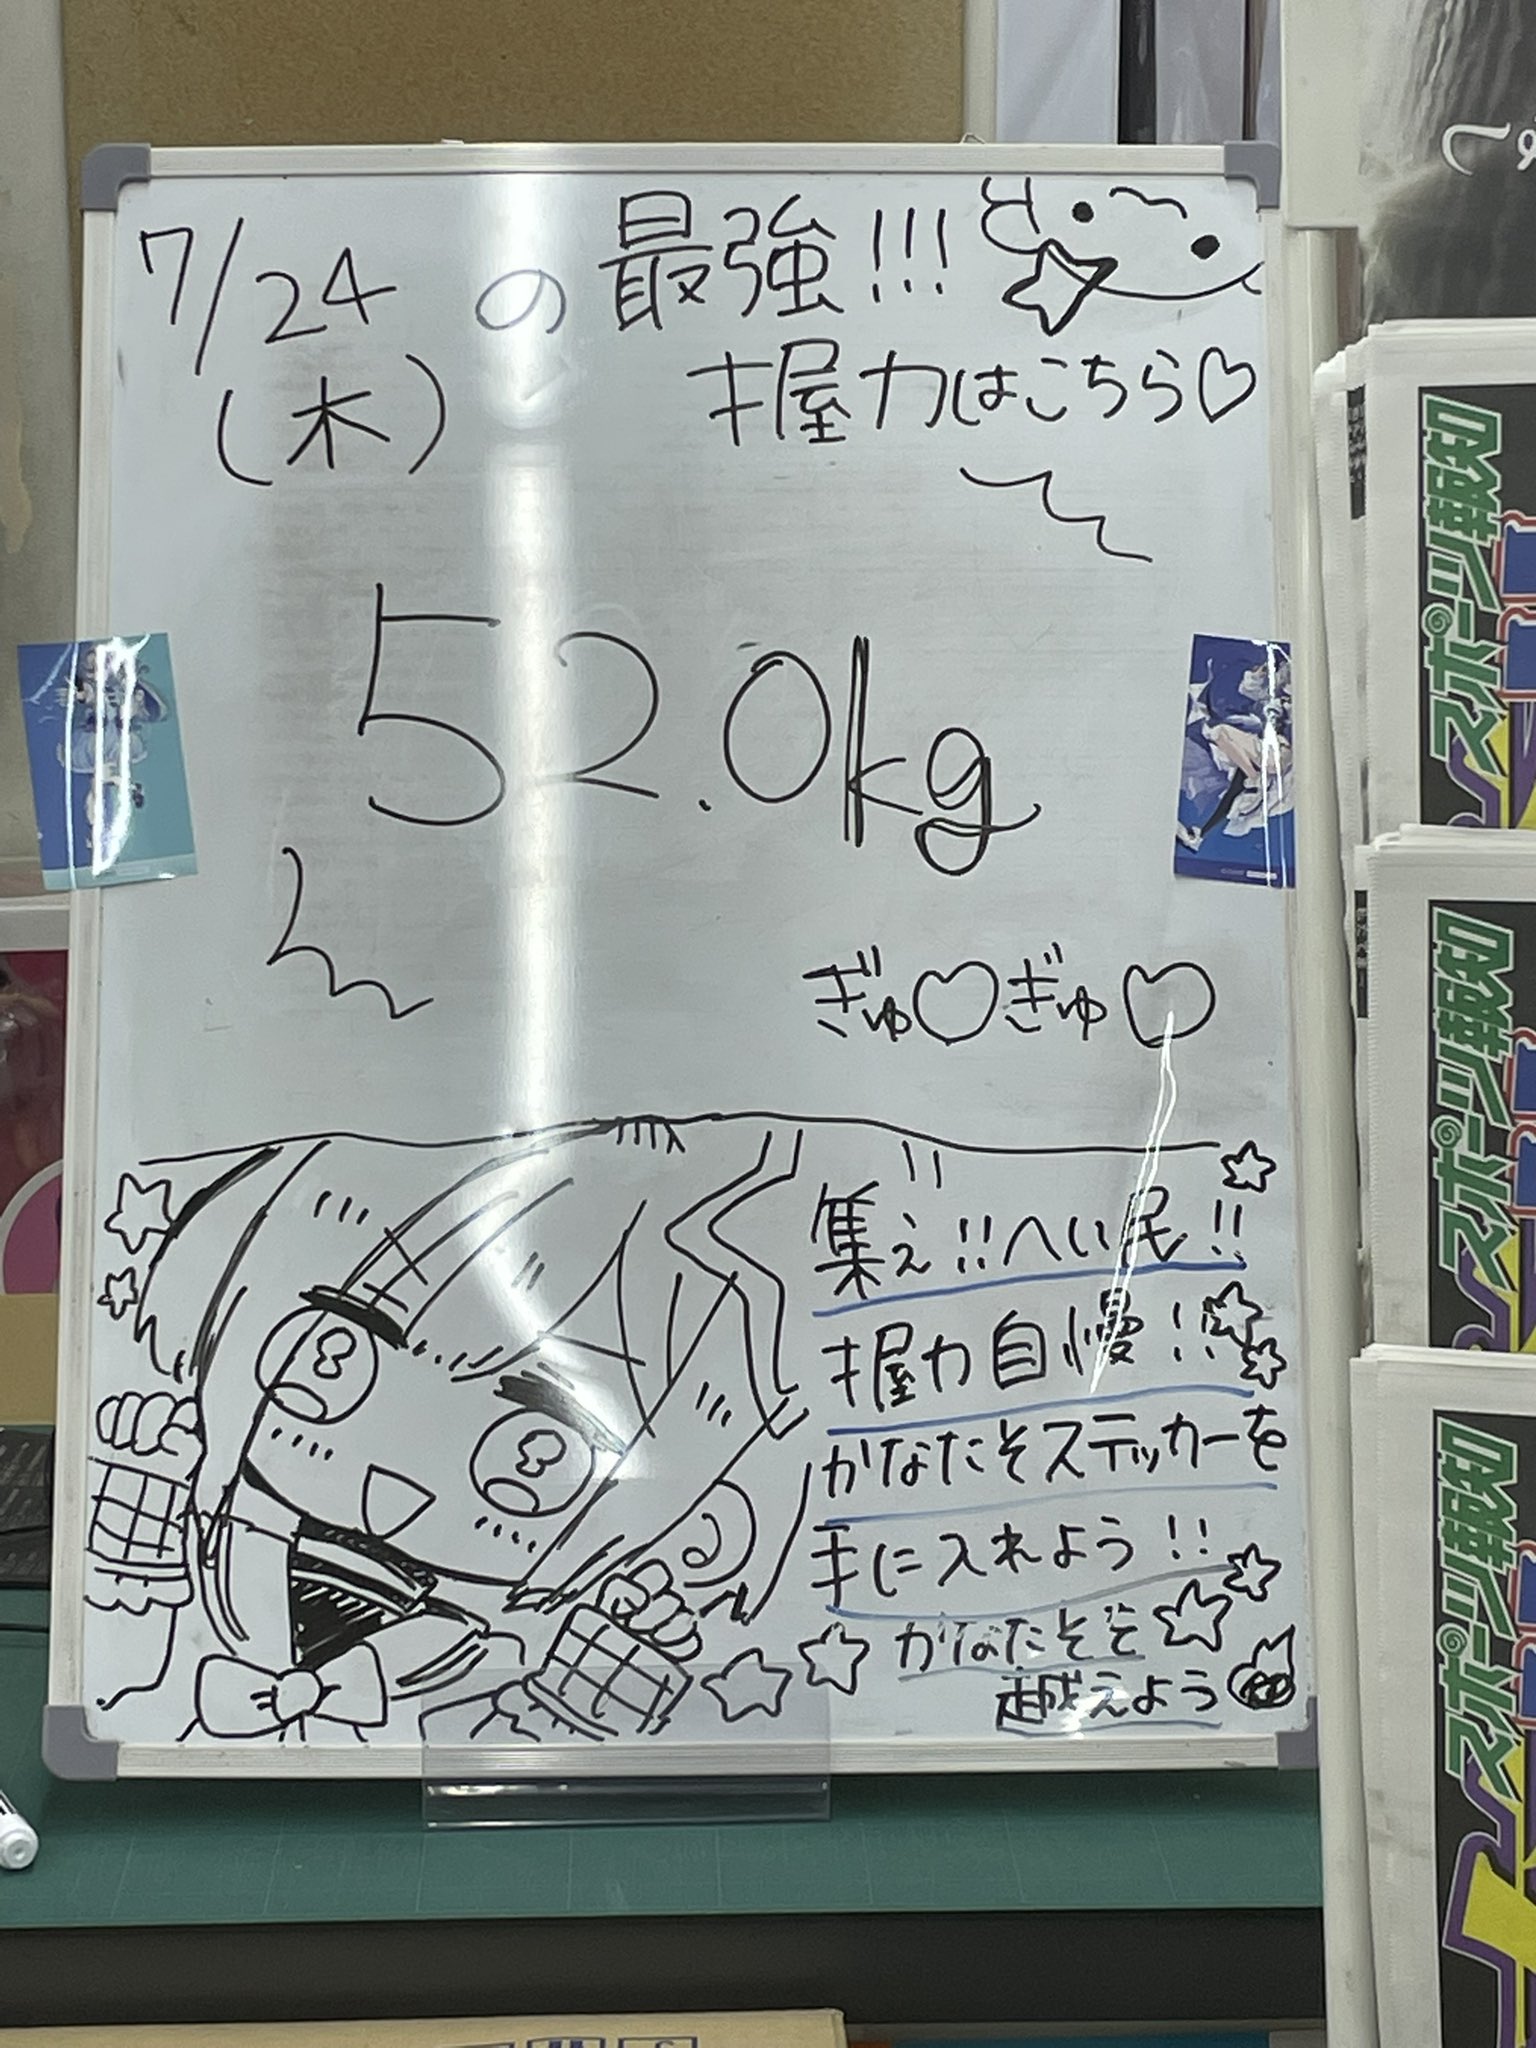 7/24の最強!!!
(木) 握力はこちら♡
52.0kg
ぎゅ♡ぎゅ♡
集え!!へい民!!
握力自慢!!
かなたそステッカーを
手に入れよう!!
かなたそを
越えよう
スポーツ報知
スポーツ報知
スポーツ報知